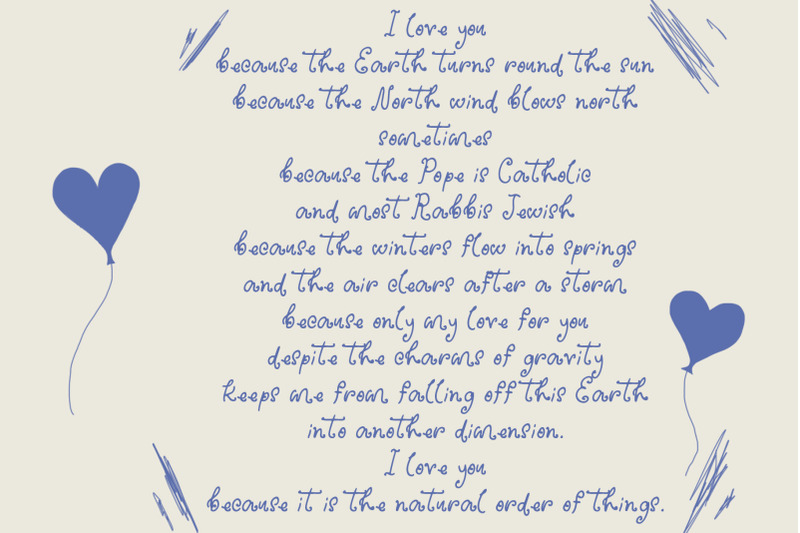 I love you
because the Earth turns round the sun
because the North wind blows north
sometimes
because the Pope is Catholic
and most Rabbis Jewish
because the winters flow into springs
and the air clears after a storm
because only my love for you
despite the charms of gravity
keeps me from falling off this Earth
into another dimension.
I love you
because it is the natural order of things.